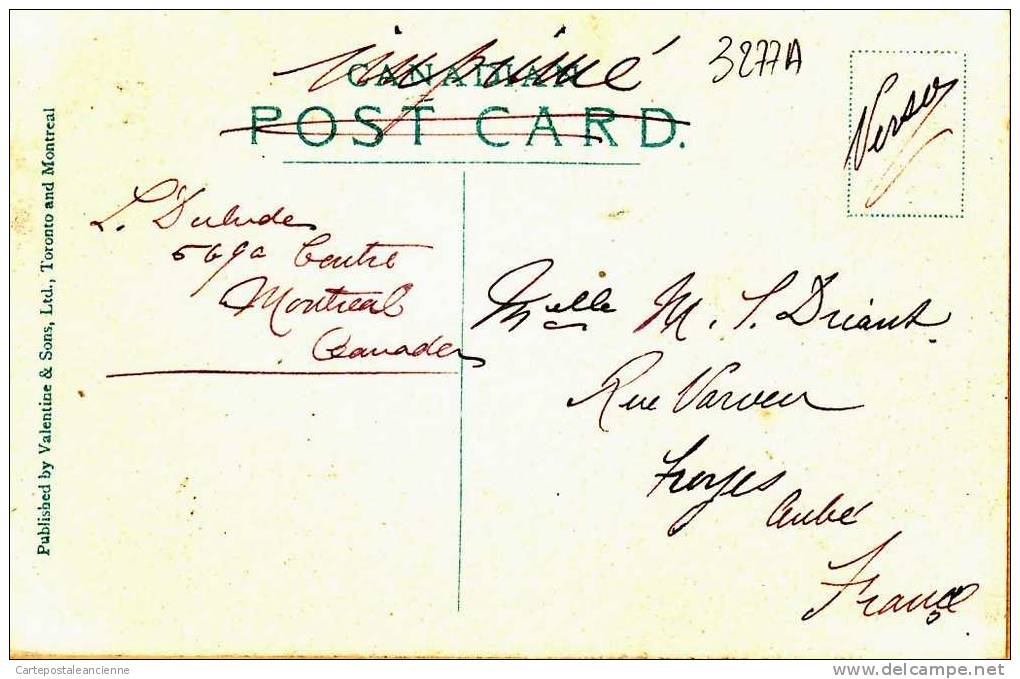 imprimé
3277A
CANADIAN
POST CARD.
Verso
L. Duludes
569a Centre
Montreal
Canada
Melle M. S. Driant.
Rue
Troyes
Aube
France
Published by Valentine & Sons, Ltd., Toronto and Montreal
Cartepostaleancienne
www.delcampe.net